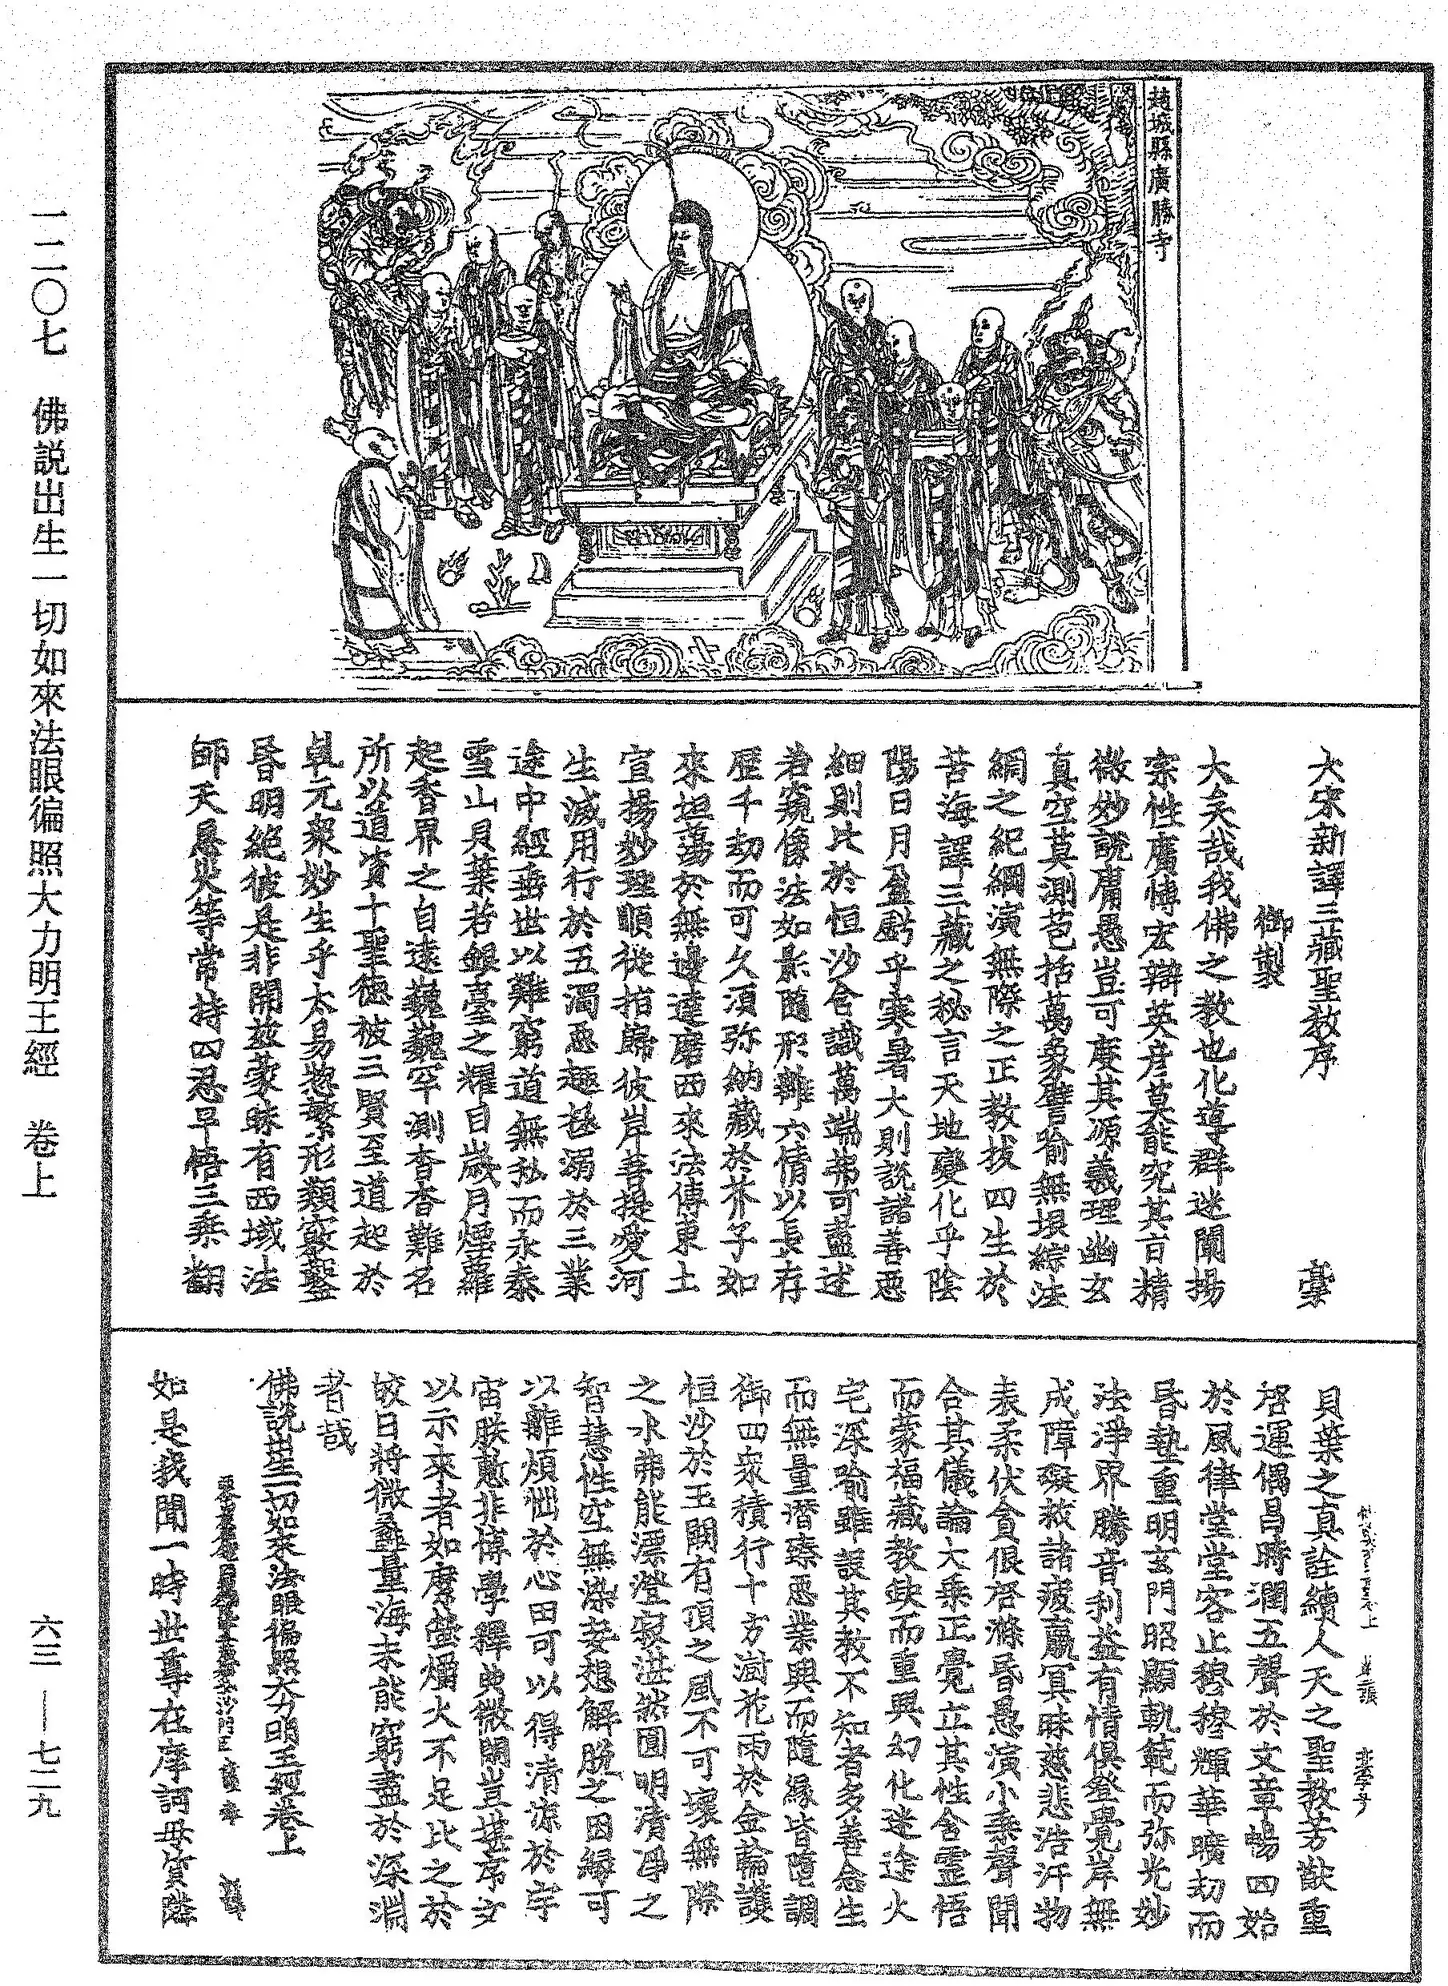 趙城縣廣勝寺
大宋新譯三藏聖教序
御製
大矣哉我佛之教也化導群迷闡揚
宗性廣博宏辯英彦莫能究其旨精
微妙說庸愚豈可度其源義理幽玄
真空莫測苞括萬象譬喻無垠綜法
網之紀綱演無際之正教拔四生於
苦海譯三藏之秘言天地變化乎陰
陽日月盈虧乎寒暑大則說諸善惡
細則比於恒沙含識萬端弗可盡述
若窺像法如影隨形離六情以長存
歷千劫而可久須弥納藏於芥子如
來坦蕩於無邊達磨西來法傳東土
宣揚妙理順從指歸彼岸菩提愛河
生滅用行於五濁惡趣拯溺於三業
途中經垂世以難窮道無私而永泰
雪山貝葉若銀臺之耀目歲月煙蘿
起香界之自遠巍巍罕測杳杳難名
所以道資十聖德被三賢至道起於
乹元衆妙生乎太易惣繁形類竅鑿
昏明絕彼是非開兹蒙昧有西域法
師天息災等常持四忍早悟三乘翻
貝葉之真詮續人天之聖教芳猷重
啓運偶昌時潤五聲於文章暢四始
於風律堂堂容止穆穆輝華曠劫而
昏墊重明玄門昭顯軌範而弥光妙
法淨界騰音利益有情俱登覺岸無
成障礙救諸疲羸冥昧慈悲浩汗物
表柔伏貪佷啓滌昏愚演小乘聲聞
合其儀論大乘正覺立其性含靈悟
而蒙福藏教缺而重興幻化迷途火
宅深喻雖設其教不知者多善念生
而無量潛臻惡業興而隨緣皆墮調
御四衆積行十方澍花雨於金輪護
恒沙於玉闕有頂之風不可壞無際
之水弗能漂澄寂湛然圓明清淨之
智慧性空無染妄想解脫之因緣可
以離煩惱於心田可以得清涼於宇
宙朕慙非博學釋典微閑豈堪序文
以示來者如摩螢爝火不足比之於
皎日將微蠡量海未能窮盡於深淵
者哉
佛說出生一切如來法眼徧照大力明王經卷上
如是我聞一時世尊在摩訶毋質隣
一二〇七 佛說出生一切如來法眼徧照大力明王經 卷上
六三—七二九